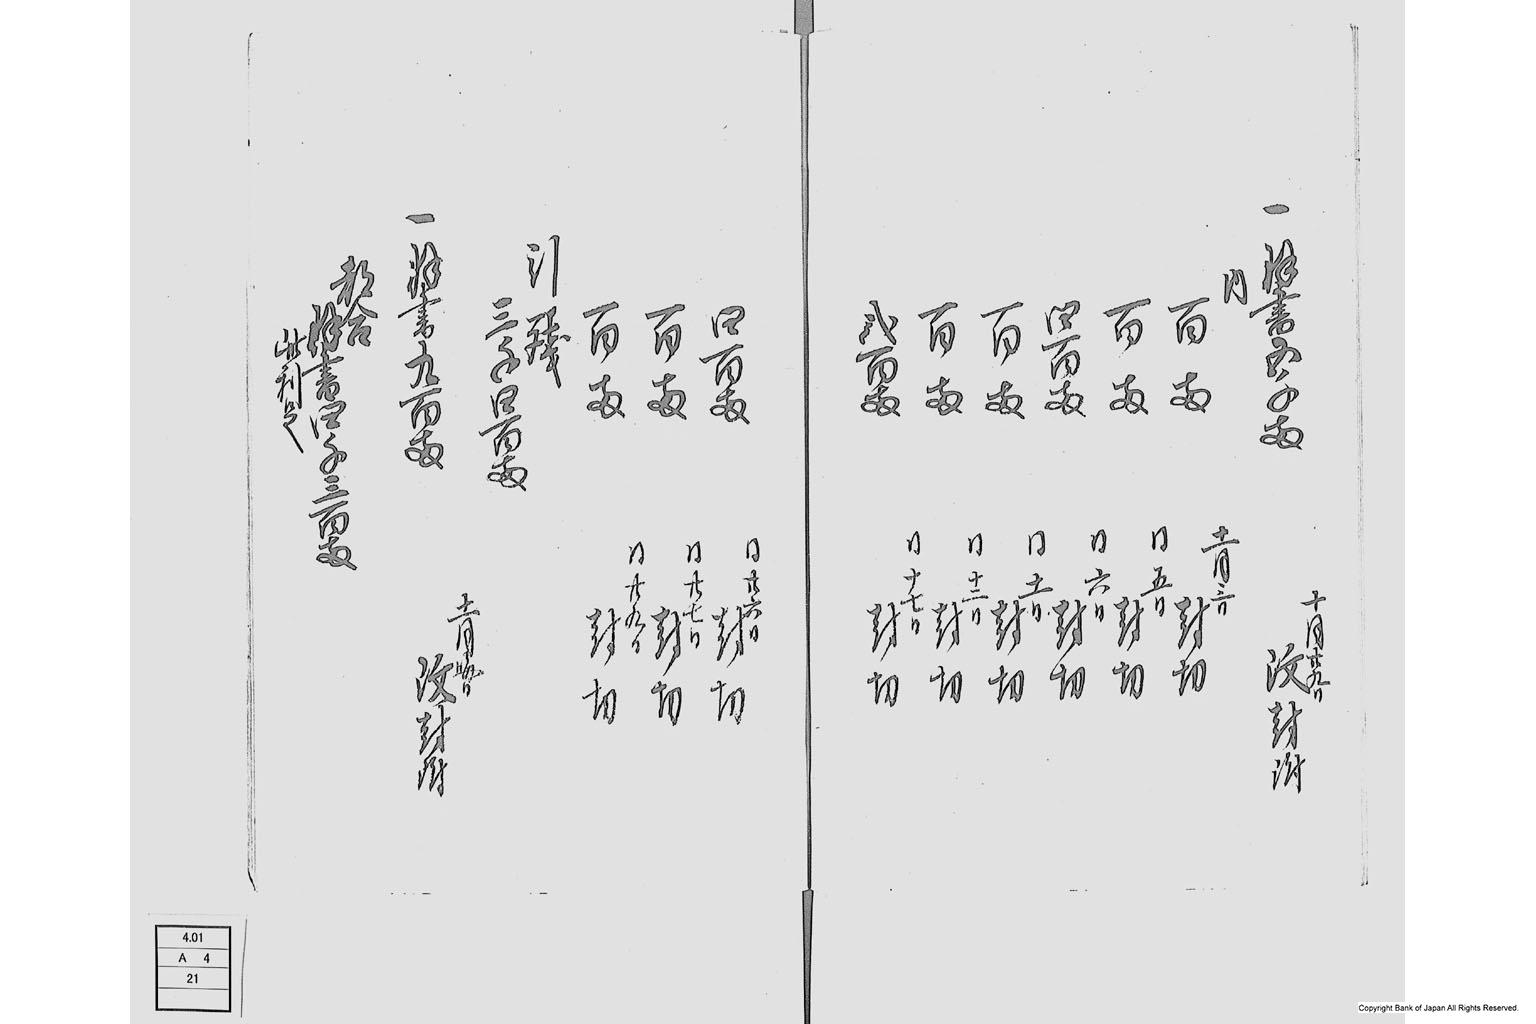 一 書五千両 十月廿九日 改封
内
百両 十一月三日 封切
百両 同五日 封切
四百両 同六日 封切
百両 同十一日 封切
百両 同十二日 封切
弐百両 同十七日 封切
四百両 同廿六日 封切
百両 同廿七日 封切
百両 同廿九日 封切
引残
三千四百両
一 書九百両 十一月晦日 改封
都合
書四千三百両
此利足
4.01
A 4
21
Copyright Bank of Japan All Rights Reserved.